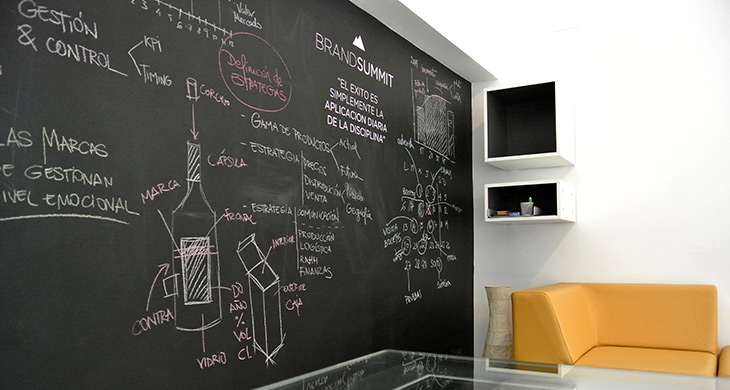 GESTIÓN
& CONTROL
KPI
TIMING
Valor
Mercado
Definición de
ESTRATEGIAS
BRANDSUMMIT
"EL EXITO ES
SIMPLEMENTE LA
APLICACION DIARIA
DE LA DISCIPLINA"
LAS MARCAS
SE GESTIONAN
NIVEL EMOCIONAL
CORCHO
CÁPSULA
MARCA
FRONTAL
CONTRA
VIDRIO
DO
AÑO
%
VOL
CL.
INTERIOR
EXTERIOR
CAJA
- GAMA DE PRODUCTOS
Actual
Futura
- ESTRATEGIA
PRECIOS
DISTRIBUCIÓN
VENTA
Geografía
- ESTRATEGIA
COMUNICACIÓN
PRODUCCIÓN
LOGÍSTICA
RRHH
FINANZAS
VISITA
BOCETOS
PRUEBAS